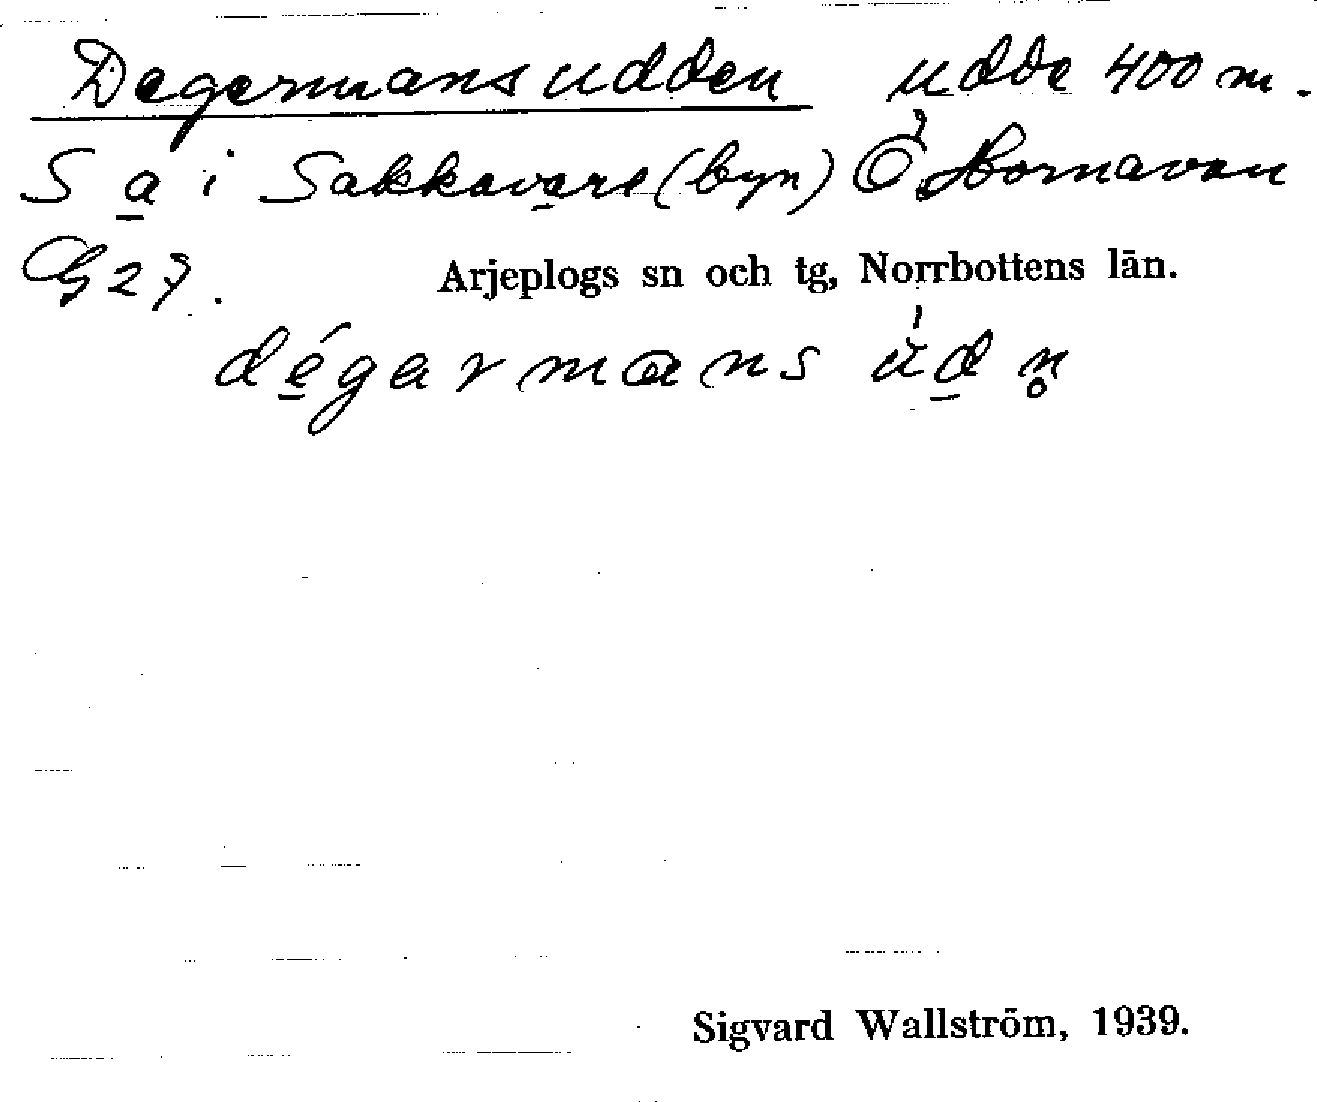 Degermansudden udde 400 m.
S a i Sakkavare (byn) Ö Hornavan
G 27.
Arjeplogs sn och tg, Norrbottens län.
dégarmans ùdn̥
Sigvard Wallström, 1939.